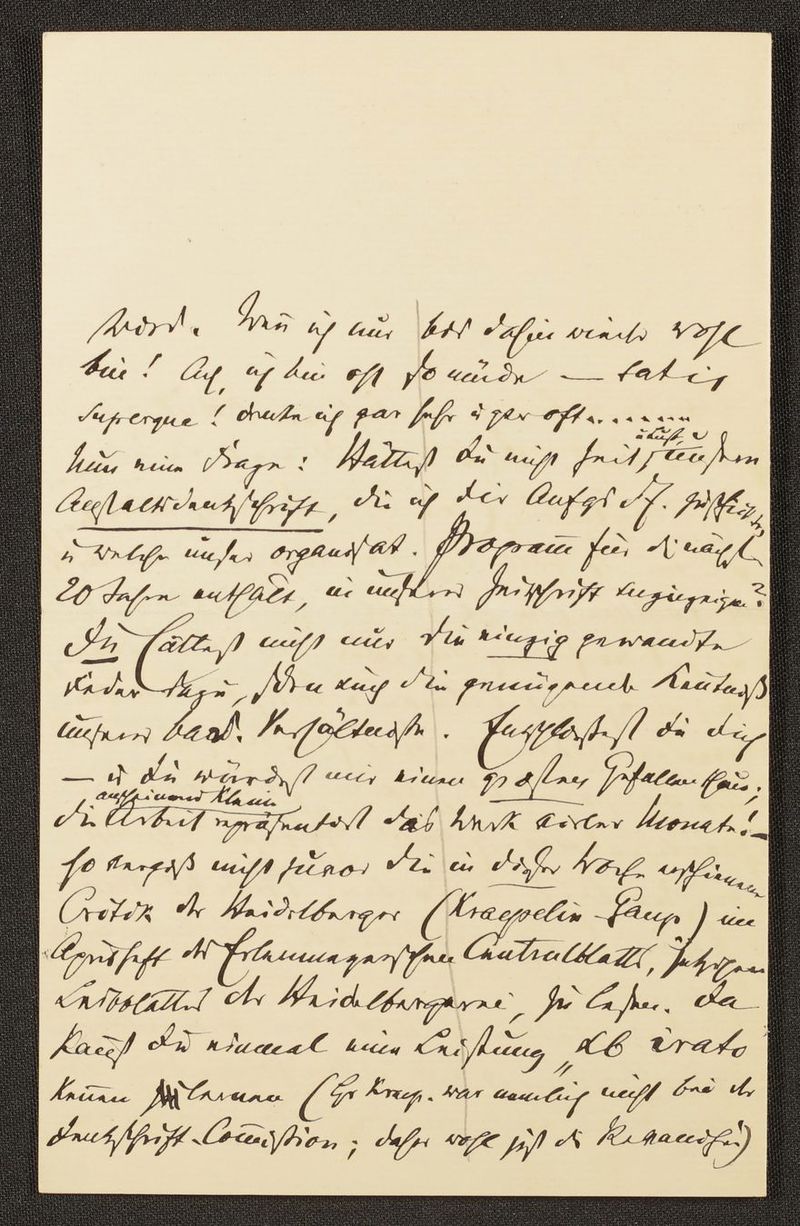 wird. Wenn ich nur bis dahin wieder wohl
bin! Ach, ich bin oft so müde — satis
superque! denke ich gar sehr u gar oft.......
Nun eine Frage: Hättest Du nicht Zeit, u Lust, unsern
Anstaltsdenkschrift, die ich Dir
u welche unser organisat. Programm für die nächsten
20 Jahre enthält, in unserer Zeitschrift anzuzeigen?
Du hättest nicht nur die einzig gewandte
Feder dazu, sondern auch die genügende Kenntniß
unserer bad. Verhältnisse. Entschließest Du Dich
— u Du würdest mir einen großen Gefallen thun;
die anscheinend kleine Arbeit repräsentirt das Werk vieler Monate! —
so vergiß nicht zuvor die in dieser Woche erschienene
Critik der Heidelberger (Kraepelin-Gaupp) im
Aprilheft des Erlenmeyerschen Centralblatts, jetzigen
Leibblattes der Heidelbergerei, zu lesen. Da
kannst Du einmal eine Leistung „ab irato
kennen lernen (Hr Kraep. war nämlich nicht bei der
Denkschrift-Commission; daher wohl jetzt die Revanche)